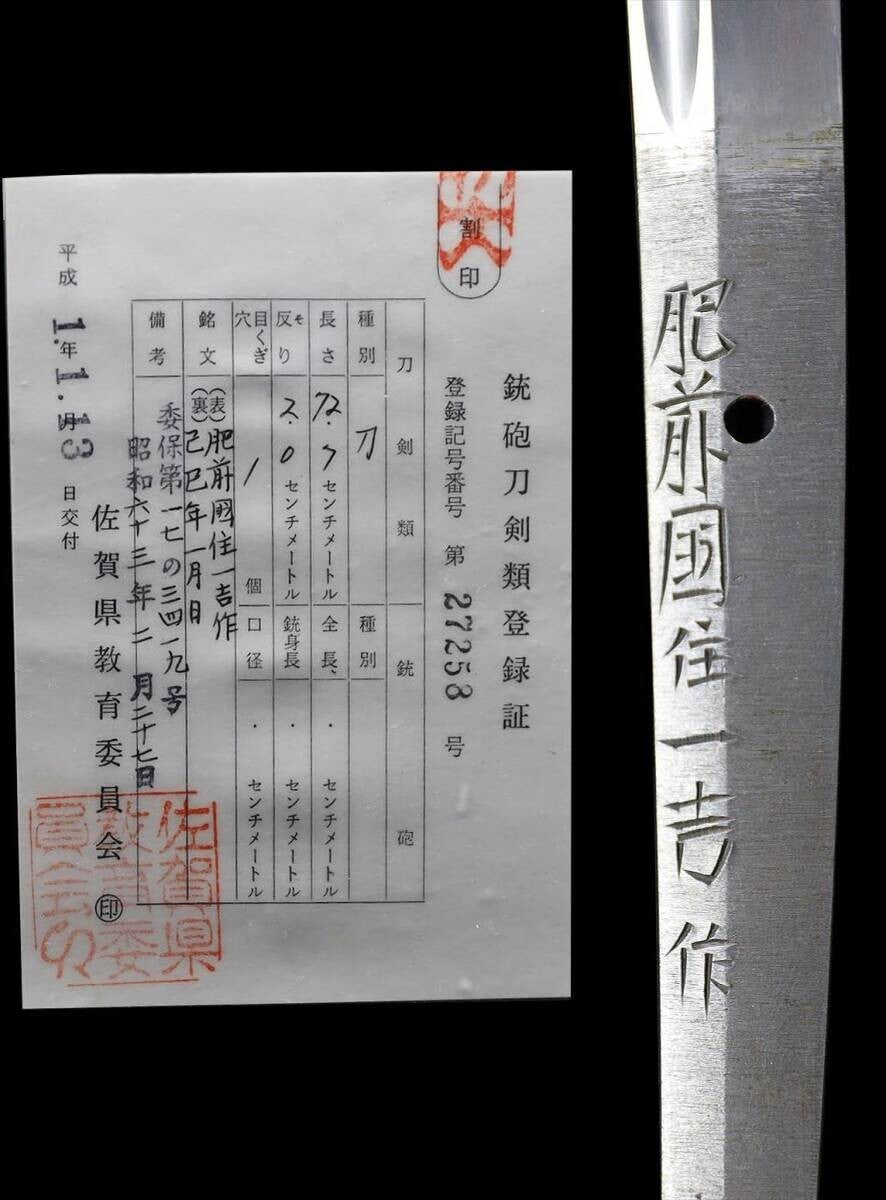 割印
銃砲刀剣類登録証
登録記号番号 第 27253 号
刀剣類
銃砲
種別 刀
種別
長さ 72.7 センチメートル
全長、 ・ センチメートル
反り そ 2.0 センチメートル
銃身長 ・ センチメートル
目くぎ穴 1 個
口径 ・ センチメートル
銘文 (表) 肥前國住一吉作
(裏) 己巳年一月日
備考 委保第一七の三四一九号
昭和六十三年二月二十七日
平成 1.年 1.月 13 日交付
佐賀県教育委員会 印
佐賀県教育委員会
肥前國住一吉作